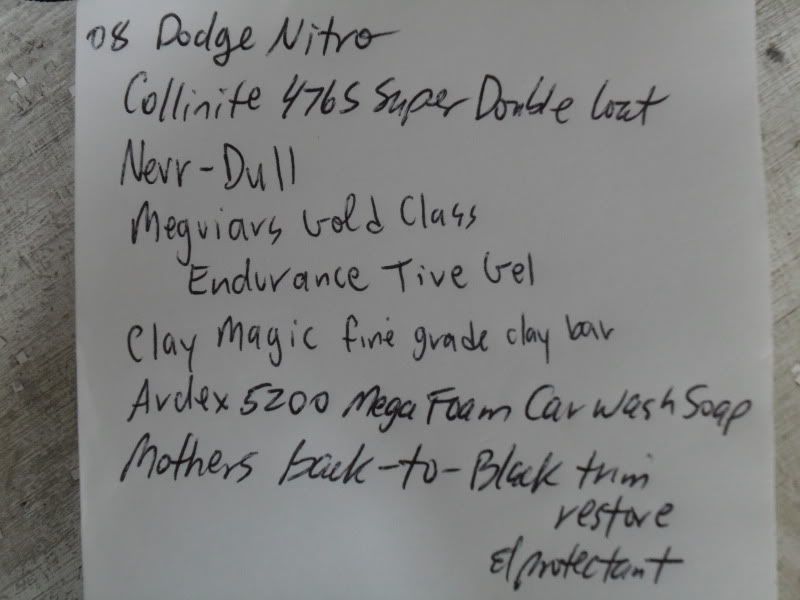 08 Dodge Nitro
Collinite 476S Super Double Coat
Nevr-Dull
Meguiars Gold Class
Endurance Tire Gel
Clay Magic fine grade clay bar
Ardex 5200 Mega Foam Car Wash Soap
Mothers back-to-Black trim
restore
& protectant